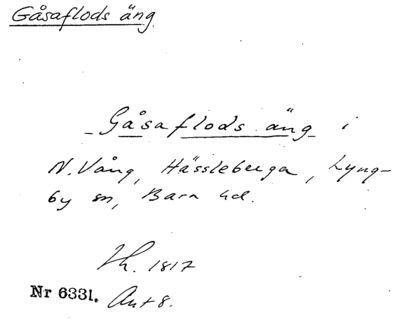 Gåsaflods äng
Gåsaflods äng i
N. Vång, Hässleberga, Lyng-
by sn, Bara hd.
1817
Nr 6331. Ant 8.